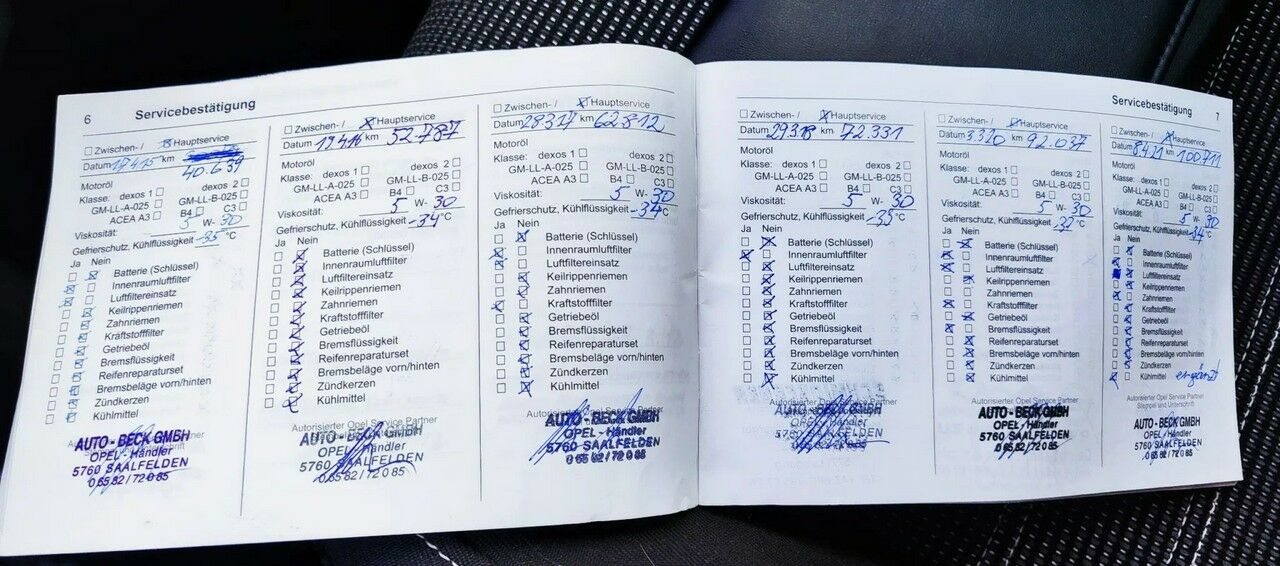 6 Servicebestätigung
Zwischen- / Hauptservice
Datum 17.4.15 km 40.639
Motoröl
Klasse: dexos 1 dexos 2
GM-LL-A-025 GM-LL-B-025
ACEA A3 B4 C3
Viskosität: 5 W- 30
Gefrierschutz, Kühlflüssigkeit -35 °C
Ja Nein
Batterie (Schlüssel)
Innenraumluftfilter
Luftfiltereinsatz
Keilrippenriemen
Zahnriemen
Kraftstofffilter
Getriebeöl
Bremsflüssigkeit
Reifenreparaturset
Bremsbeläge vorn/hinten
Zündkerzen
Kühlmittel
AUTO - BECK GMBH
OPEL - Händler
5760 SAALFELDEN
0 65 82 / 72 0 85
Zwischen- / Hauptservice
Datum 19.4.16 km 52.787
Motoröl
Klasse: dexos 1 dexos 2
GM-LL-A-025 GM-LL-B-025
ACEA A3 B4 C3
Viskosität: 5 W- 30
Gefrierschutz, Kühlflüssigkeit -34 °C
Ja Nein
Batterie (Schlüssel)
Innenraumluftfilter
Luftfiltereinsatz
Keilrippenriemen
Zahnriemen
Kraftstofffilter
Getriebeöl
Bremsflüssigkeit
Reifenreparaturset
Bremsbeläge vorn/hinten
Zündkerzen
Kühlmittel
Autorisierter Opel Service Partner
AUTO - BECK GMBH
OPEL - Händler
5760 SAALFELDEN
0 65 82 / 72 0 85
Zwischen- / Hauptservice
Datum 28.3.17 km 62.812
Motoröl
Klasse: dexos 1 dexos 2
GM-LL-A-025 GM-LL-B-025
ACEA A3 B4 C3
Viskosität: 5 W- 30
Gefrierschutz, Kühlflüssigkeit -34 °C
Ja Nein
Batterie (Schlüssel)
Innenraumluftfilter
Luftfiltereinsatz
Keilrippenriemen
Zahnriemen
Kraftstofffilter
Getriebeöl
Bremsflüssigkeit
Reifenreparaturset
Bremsbeläge vorn/hinten
Zündkerzen
Kühlmittel
Autorisierter Opel Service Partner
AUTO - BECK GMBH
OPEL - Händler
5760 SAALFELDEN
0 65 82 / 72 0 85
Servicebestätigung 7
Zwischen- / Hauptservice
Datum 29.3.18 km 72.331
Motoröl
Klasse: dexos 1 dexos 2
GM-LL-A-025 GM-LL-B-025
ACEA A3 B4 C3
Viskosität: 5 W- 30
Gefrierschutz, Kühlflüssigkeit -35 °C
Ja Nein
Batterie (Schlüssel)
Innenraumluftfilter
Luftfiltereinsatz
Keilrippenriemen
Zahnriemen
Kraftstofffilter
Getriebeöl
Bremsflüssigkeit
Reifenreparaturset
Bremsbeläge vorn/hinten
Zündkerzen
Kühlmittel
Autorisierter Opel Service Partner
AUTO - BECK GMBH
OPEL - Händler
5760 SAALFELDEN
0 65 82 / 72 0 85
Zwischen- / Hauptservice
Datum 3.3.20 km 92.037
Motoröl
Klasse: dexos 1 dexos 2
GM-LL-A-025 GM-LL-B-025
ACEA A3 B4 C3
Viskosität: 5 W- 30
Gefrierschutz, Kühlflüssigkeit -32 °C
Ja Nein
Batterie (Schlüssel)
Innenraumluftfilter
Luftfiltereinsatz
Keilrippenriemen
Zahnriemen
Kraftstofffilter
Getriebeöl
Bremsflüssigkeit
Reifenreparaturset
Bremsbeläge vorn/hinten
Zündkerzen
Kühlmittel
Autorisierter Opel Service Partner
AUTO - BECK GMBH
OPEL - Händler
5760 SAALFELDEN
0 65 82 / 72 0 85
Zwischen- / Hauptservice
Datum 8.4.21 km 100.711
Motoröl
Klasse: dexos 1 dexos 2
GM-LL-A-025 GM-LL-B-025
ACEA A3 B4 C3
Viskosität: 5 W- 30
Gefrierschutz, Kühlflüssigkeit -34 °C
Ja Nein
Batterie (Schlüssel)
Innenraumluftfilter
Luftfiltereinsatz
Keilrippenriemen
Zahnriemen
Kraftstofffilter
Getriebeöl
Bremsflüssigkeit
Reifenreparaturset
Bremsbeläge vorn/hinten
Zündkerzen
Kühlmittel ergänzt
Autorisierter Opel Service Partner
Stempel und Unterschrift
AUTO - BECK GMBH
OPEL - Händler
5760 SAALFELDEN
0 65 82 / 72 0 85